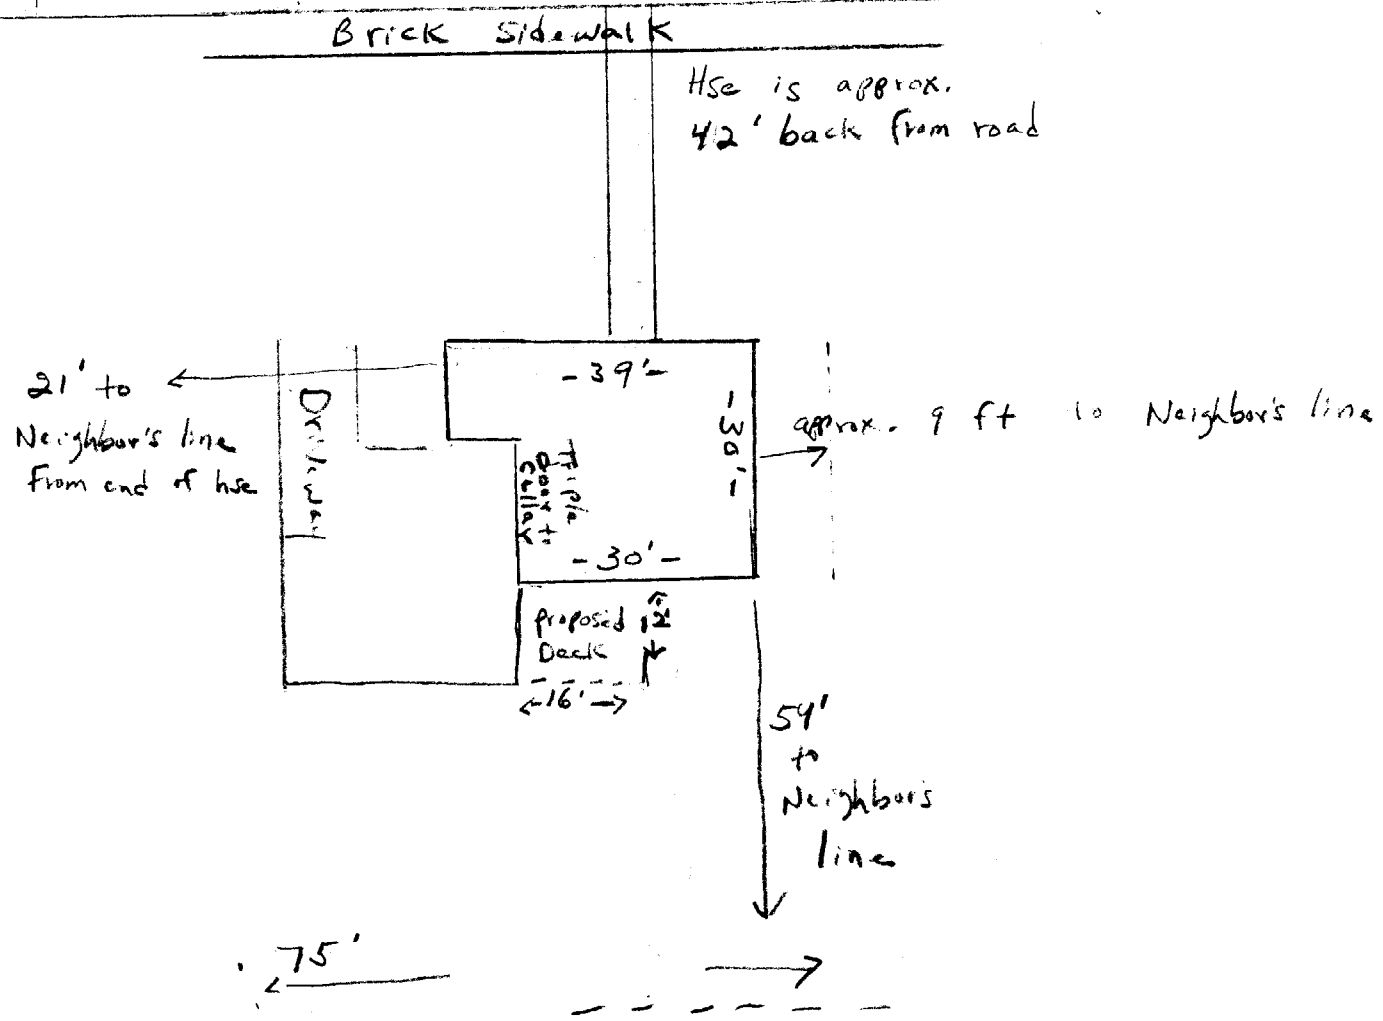 Brick Sidewalk
Hse is approx.
42' back from road
21' to
Neighbor's line
From end of hse
Driveway
-39'-
-30'-
approx. 9 ft to Neighbor's line
Triple
Door to
Cellar
-30'-
Proposed 12'
Deck
16'
59'
to
Neighbors
line
75'